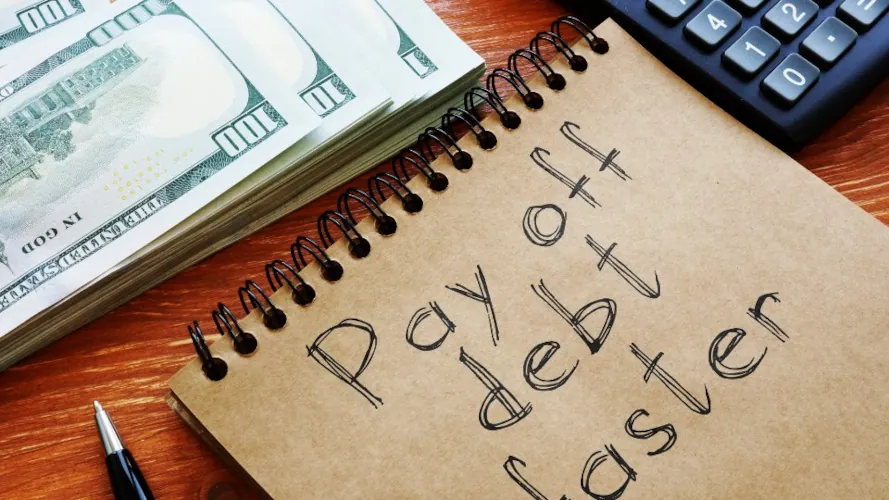 Pay off
debt
faster
100
100
100
100
IN GOD
THE UNITED STATES
4
1
2
0
.
=